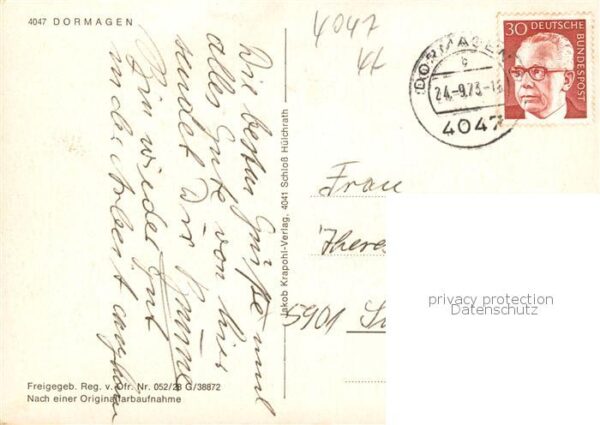 4047 DORMAGEN
4047
Die besten Grüße und
alles Gute von hier
sendet Dir
Bin wieder gut
in der Arbeit
Jakob Krapohl-Verlag, 4041 Schloß Hülchrath
DORMAGEN
c
24.-9.73.-18
4047
30 DEUTSCHE BUNDESPOST
Frau
There
5901
privacy protection
Datenschutz
Freigegeb. Reg. v. Dfr. Nr. 052/28 G/38872
Nach einer Originalfarbaufnahme